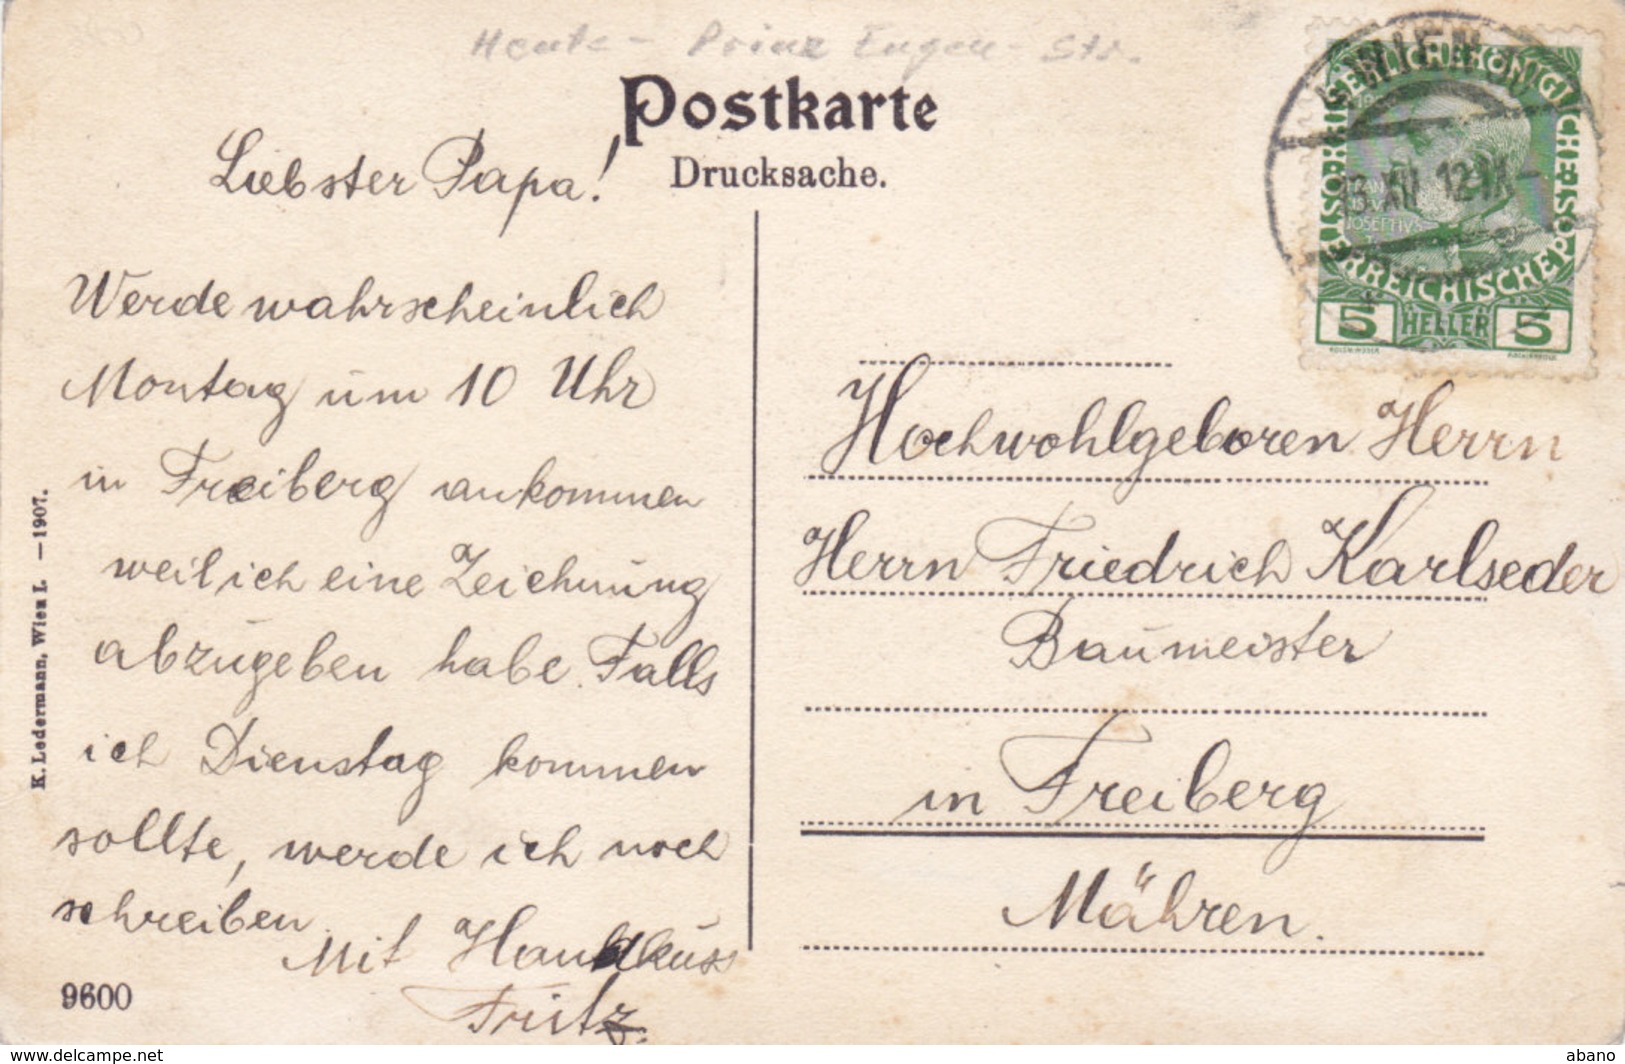 Heute - Prinz Eugen - Str.
Postkarte
Drucksache.
Liebster Papa!
Werde wahrscheinlich
Montag um 10 Uhr
in Freiberg ankommen
weil ich eine Zeichnung
abzugeben habe. Falls
ich Dienstag kommen
sollte, werde ich noch
schreiben.
Mit Handkuss
Fritz.
9600
K. Ledermann, Wien I. — 1907.
KAISERLICHE KÖNIGLICHE
ÖSTERREICHISCHE POST
JOSEPHVS
5 HELLER 5
WIEN
13. XII 12
Hochwohlgeboren Herrn
Herrn Friedrich Karlseder
Baumeister
in Freiberg
Mähren.
www.delcampe.net
abano